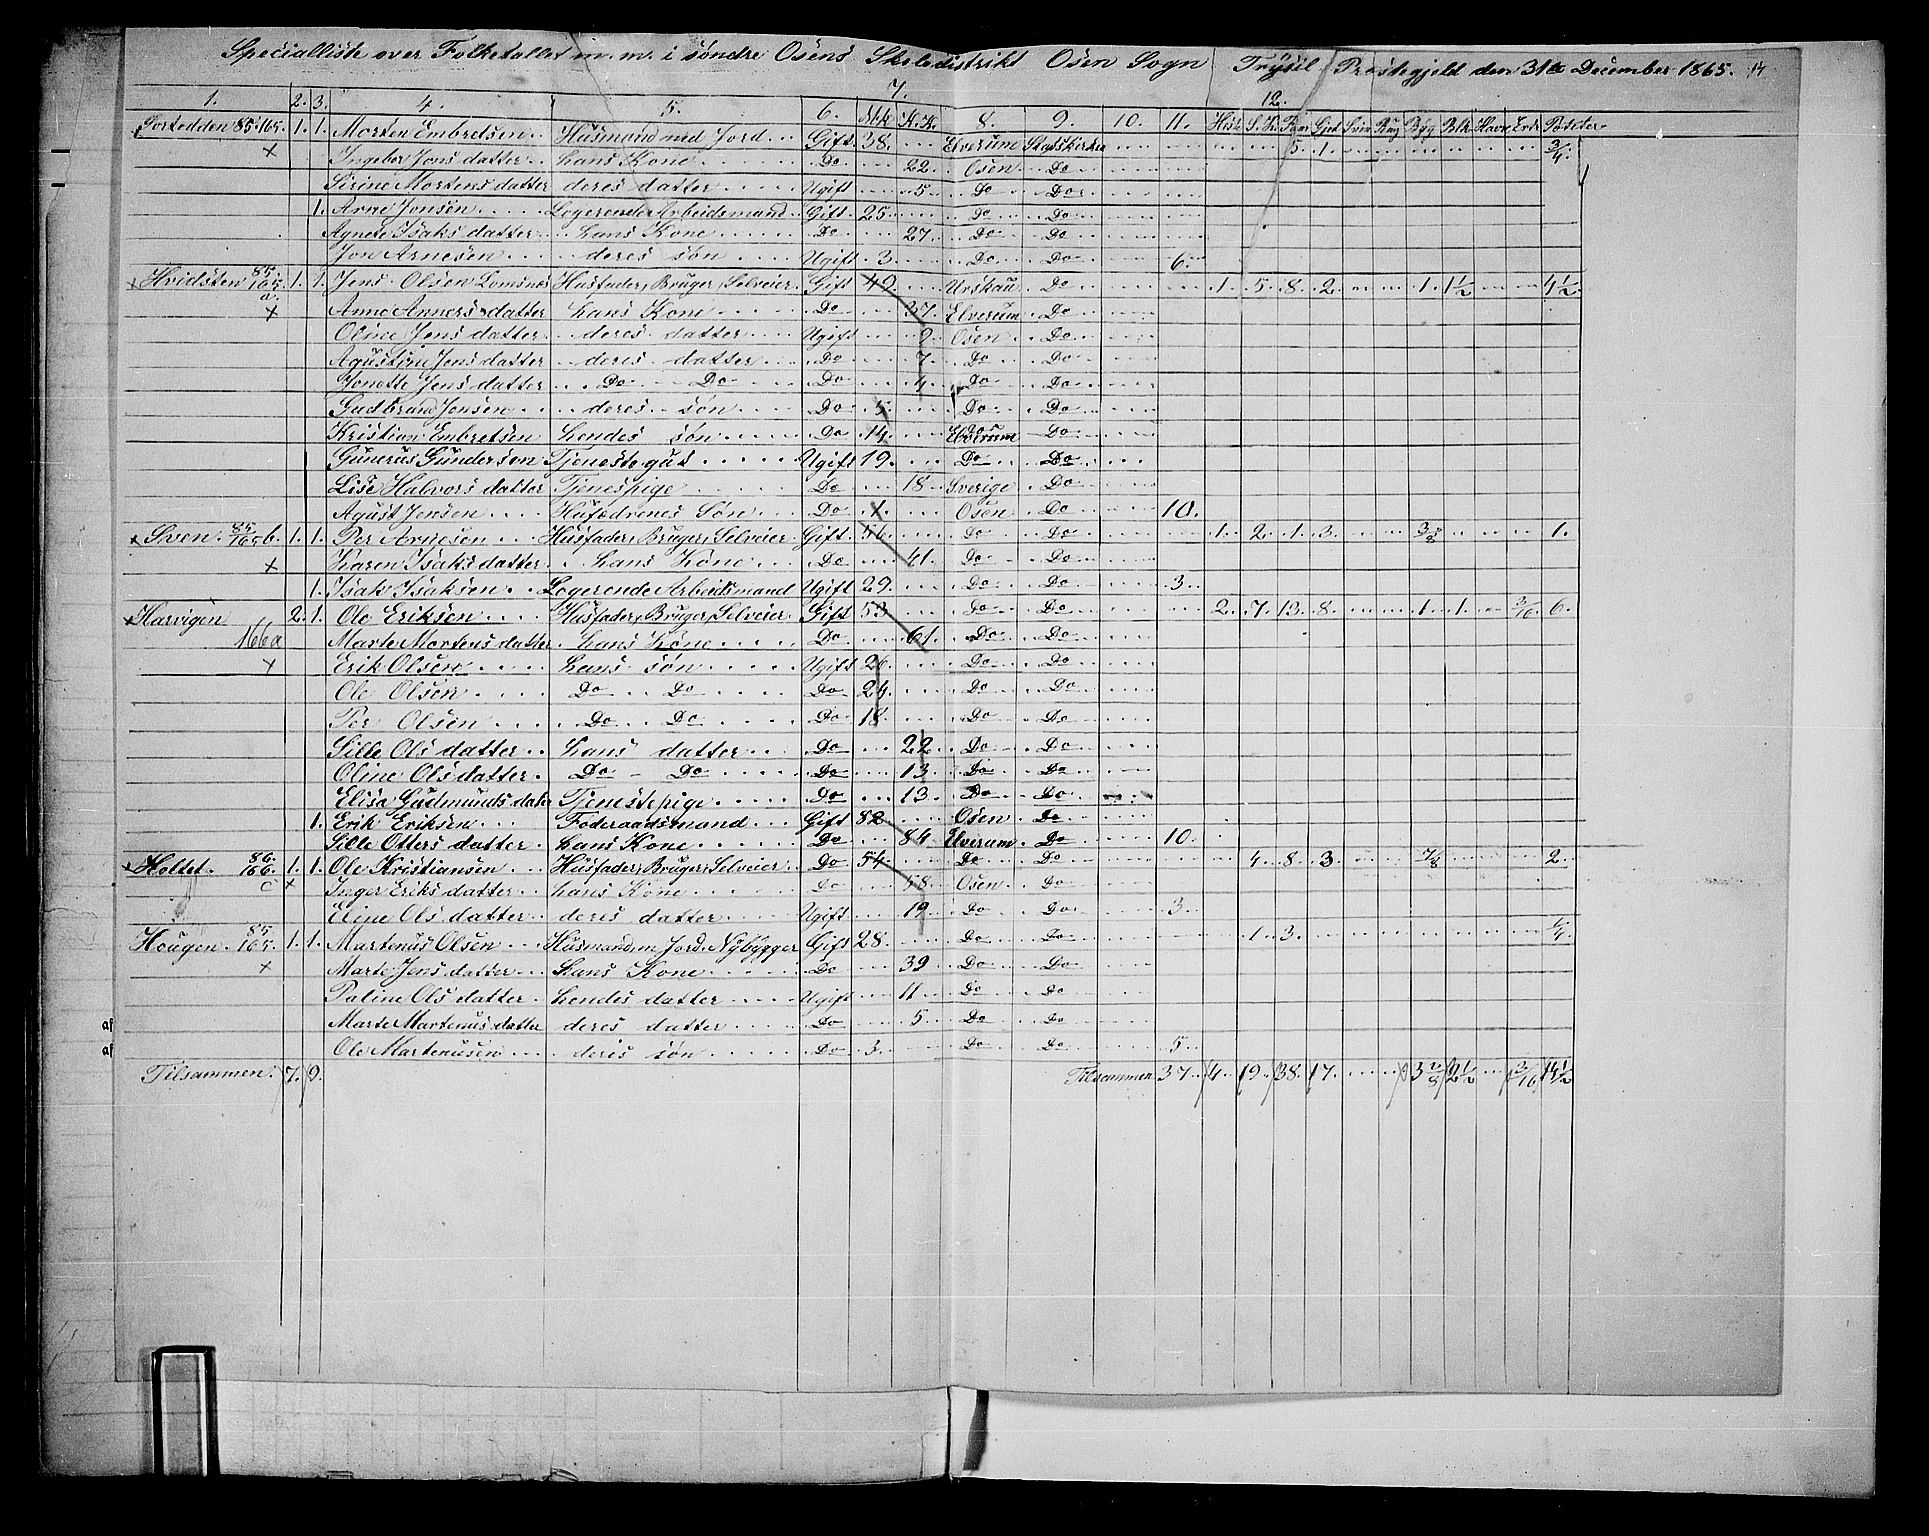 Specialliste over Folketallet m. m. i søndre Osens Skoledistrikt Osen Sogn Trysil Præstegjeld den 31te December 1865. 14
1. 2. 3. 4. 5. 6. 7. 8. 9. 10. 11. 12.
Mk. K.K. Hist S. Kr Faar Gjet Svin Rug Byg Blk Havre Erter Poteter
85.165. 1. 1. Morten Embretsen Husmand med Jord Gift 38. Elverum Statskirken 5. 1. 3/4.
x Ingebor Jons datter hans Kone Do 22. Osen Do
Sirine Mortens datter deres datter Ugift 5. Do Do
1. Arne Jonsen Logerende Arbeidsmand Gift 25. Do Do
Agnete Isaks datter hans Kone Do 27. Do Do
Jon Arnesen deres søn Ugift 3. Do Do 6.
x Hvidsten 85. 165. a. 1. 1. Jens Olsen Lomsnes Husfader, Bruger, Selveier Gift 49. Urskau Do 1. 5. 8. 2. 1. 1 1/2 4 1/2.
x Anne Anners datter hans Kone Do 37. Elverum Do
Oline Jens datter deres datter Ugift 9 Osen Do
Agustine Jens datter deres datter Do 7. Do Do
Jonette Jens datter Do Do Do 4 Do Do
Gudbrand Jensen deres søn Do 5. Do Do
Kristian Embretsen hendes søn Do 14. Elverum Do
Gunerus Gundersen Tjenestegut Ugift 19. Do Do
Lise Halvors datter Tjenespige Do 18 Sverige Do
Agust Jensen Husfædrenes Søn Do 1. Osen Do 10.
x Sven 85/165 b. 1. 1. Per Arnesen Husfader, Bruger, Selveier Gift 56. Do Do 1. 2. 1. 3. 3/8 1.
x Karen Isaks datter hans Kone Do 61. Do Do
1. Isak Isaksen Logerende Arbeidsmand Ugift 29. Do Do 3.
x Harvigen 2. 1. Ole Eriksen Husfader, Bruger, Selveier Gift 53 Do Do 2. 7. 13. 8. 1. 1. 3/16 6.
166a Marte Mortens datter hans Kone Do 61. Do Do
x Erik Olsen hans søn Ugift 26. Do Do
Ole Olsen Do Do Do 24. Do Do
Per Olsen Do Do Do 18. Do Do
Sille Ols datter hans datter Do 22. Do Do
Oline Olsdatter Do Do Do 13. Do Do
Elisa Gudmunds datter Tjenestepige Do 13. Do Do
1. Erik Eriksen Føderaadsmand Gift 82 Osen Do
Sille Otters datter hans Kone Do 84 Elverum Do 10.
x Holtet. 86. 166. c 1. 1. Ole Kristiansen Husfader, Bruger, Selveier Do 54. Do Do 4. 8. 3. 7/8 2.
x Inger Eriks datter hans Kone Do 58. Osen Do
Eline Ols datter deres datter Ugift 19. Do Do 3.
Hougen. 85. 165. 1. 1. Martenus Olsen Husmand m Jord. Nybygger Gift 28. Do Do 1. 3. 1/4.
x Marte Jens datter hans Kone Do 39 Do Do
Paline Ols datter hendes datter Ugift 11 Do Do
Marte Martenus datter deres datter Do 5 Do Do
Ole Martenusen deres søn Do 3. Do Do 5.
Tilsammen. 7. 9. Tilsammen 37. 4. 19. 38. 17. 3 2/8 2 1/2 3/16 14 1/2
af
af